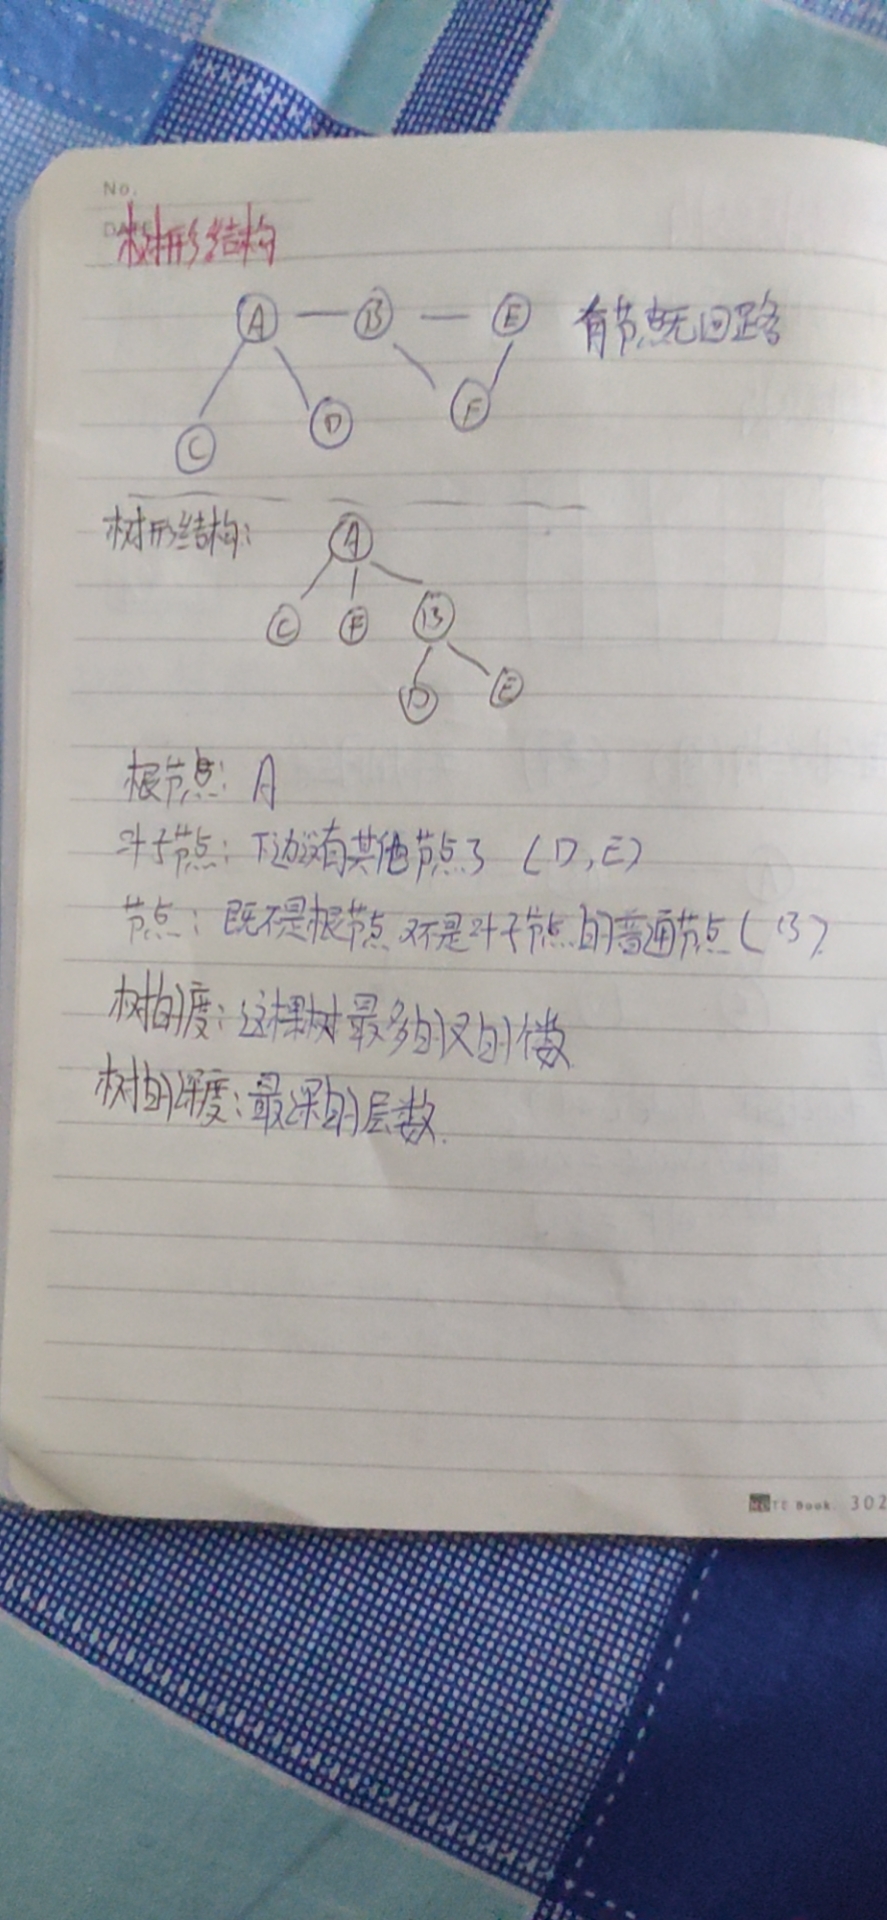 No.
DATE
树形结构
A B E 有节点无回路
C D F
树形结构:
A
C F B
D E
根节点: A
叶子节点: 下边没有其他节点了 (D,E)
节点: 既不是根节点又不是叶子节点的普通节点(B)
树的度: 这棵树最多的叉的个数
树的深度: 最深的层数.
NOTE Book. 302